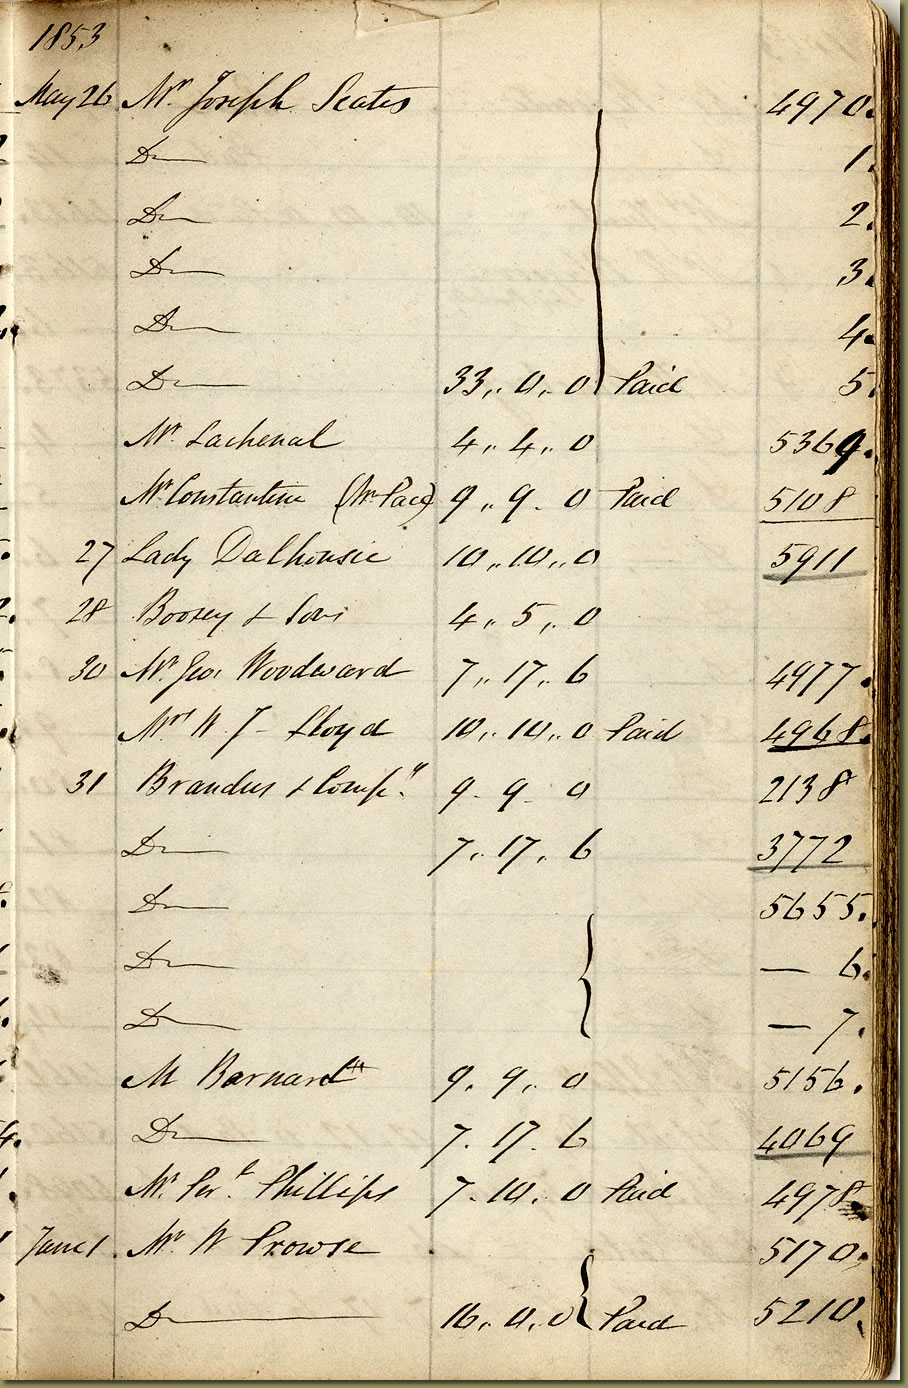 1853
May 26 Mr Joseph Scates 4970.
Do 1.
Do 2.
Do 3.
Do 4.
Do 33,, 0,, 0 Paid 5.
Mr Lachenal 4,, 4,, 0 5369.
Mr Constantine (Mr Pace) 9,, 9 - 0 Paid 5108
27 Lady Dalhousie 10,, 10,, 0 5911
28 Boosey & Sons 4,, 5,, 0
30 Mr Geo. Woodward 7,, 17,, 6 4977.
Mrs W. J - Lloyd 10,, 10,, 0 Paid 4968.
31 Brandus & Compy. 9 - 9 - 0 2138
Do 7,, 17,, 6 3772
Do 5655.
Do — 6.
Do — 7.
M Barnard 9. 9,, 0 5156.
Do 7. 17. 6 4069
Mr Phillips 7. 10. 0 Paid 4978.
June 1. Mr. W Prowse 5170.
Do 16,, 0,, 0 Paid 5210.